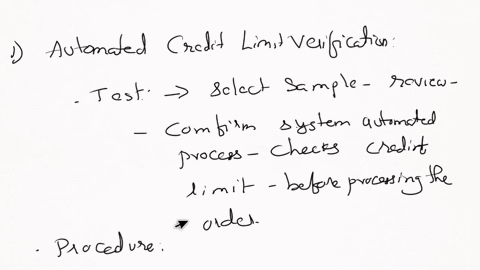 1) Automated Credit Limit Verification:
. Test: → Select Sample - review -
- Confirm system automated
process - checks credit
limit - before processing the
order.
. Procedure: